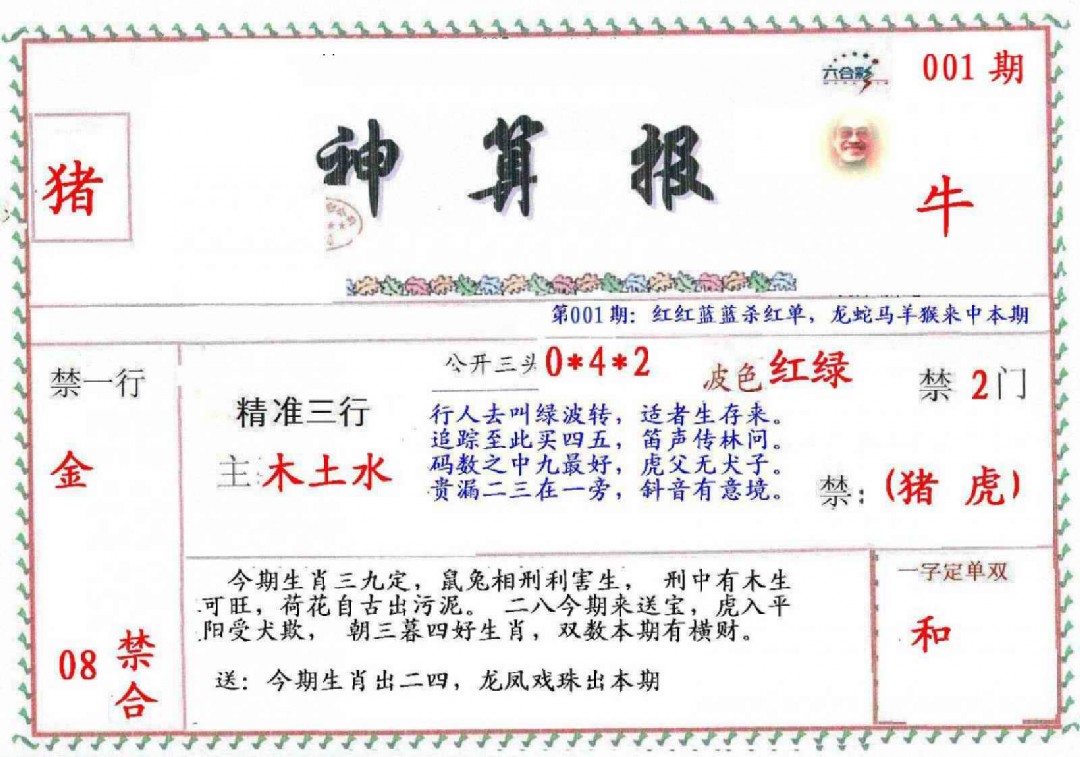 六合彩
001 期
神算报
猪
牛
第001期：红红蓝蓝杀红单，龙蛇马羊猴来中本期
禁一行
金
08 禁合
精准三行
主：木土水
公开三头 0*4*2
波色 红绿
行人去叫绿波转，适者生存来。
追踪至此买四五，笛声传林问。
码数之中九最好，虎父无犬子。
贵漏二三在一旁，斜音有意境。
禁 2门
禁：(猪 虎)
今期生肖三九定，鼠兔相刑利害生， 刑中有木生
可旺，荷花自古出污泥。 二八今期来送宝，虎入平
阳受犬欺， 朝三暮四好生肖，双数本期有横财。
送：今期生肖出二四，龙凤戏珠出本期
一字定单双
和